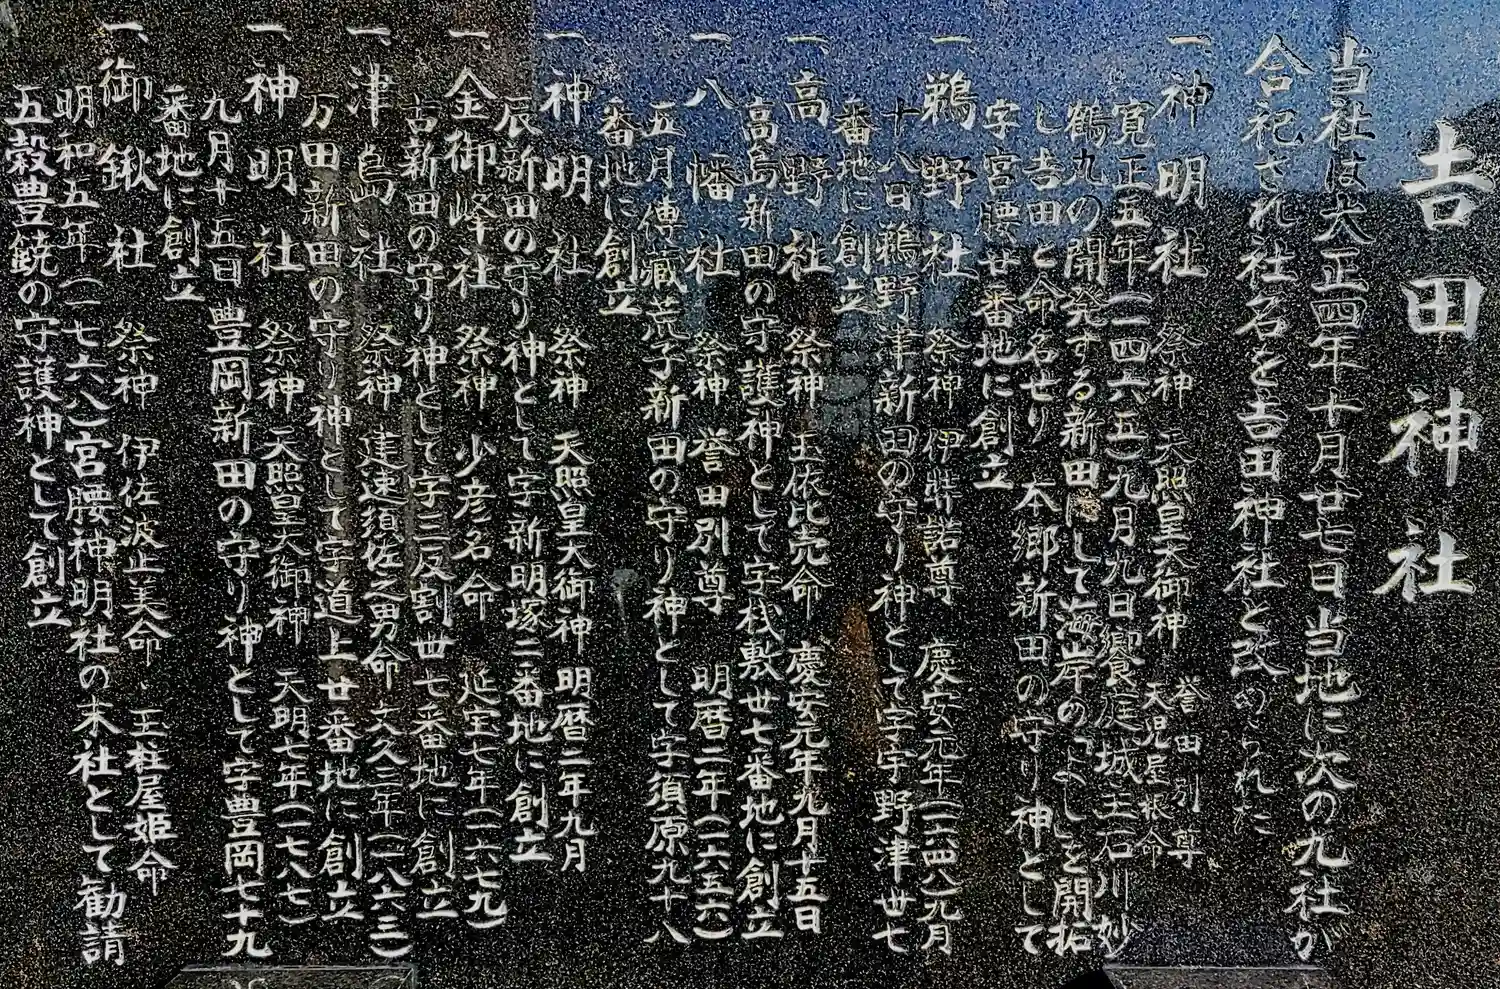 吉田神社
当社は大正四年十月廿七日当地に次の九社が
合祀され社名を吉田神社と改められた
一、神明社 祭神 天照皇大御神 誉田別尊 天児屋根命
寛正五年(一四六五)九月九日饗庭城主石川妙
鶴丸の開発する新田にして海岸のよしを開拓
し吉田と命名せり 本郷新田の守り神として
字宮腰廿番地に創立
一、鵜野社 祭神 伊弉諾尊 慶安元年(一六四八)九月
十八日鵜野津新田の守り神として字宇野津丗七
番地に創立
一、高野社 祭神 玉依比売命 慶安元年九月十五日
高島新田の守護神として字桟敷丗七番地に創立
一、八幡社 祭神 誉田別尊 明暦二年(一六五六)
五月傳蔵荒子新田の守り神として字須原九十八
番地に創立
一、神明社 祭神 天照皇大御神 明暦二年九月
辰新田の守り神として字新明塚二番地に創立
一、金御峰社 祭神 少彦名命 延宝七年(一六七九)
吉新田の守り神として字三反割丗七番地に創立
一、津島社 祭神 建速須佐之男命 文久三年(一八六三)
万田新田の守り神として字道上廿番地に創立
一、神明社 祭神 天照皇大御神 天明七年(一七八七)
九月十五日豊岡新田の守り神として字豊岡七十九
番地に創立
一、御鍬社 祭神 伊佐波止美命、玉柱屋姫命
明和五年(一七六八)宮腰神明社の末社として勧請
五穀豊饒の守護神として創立